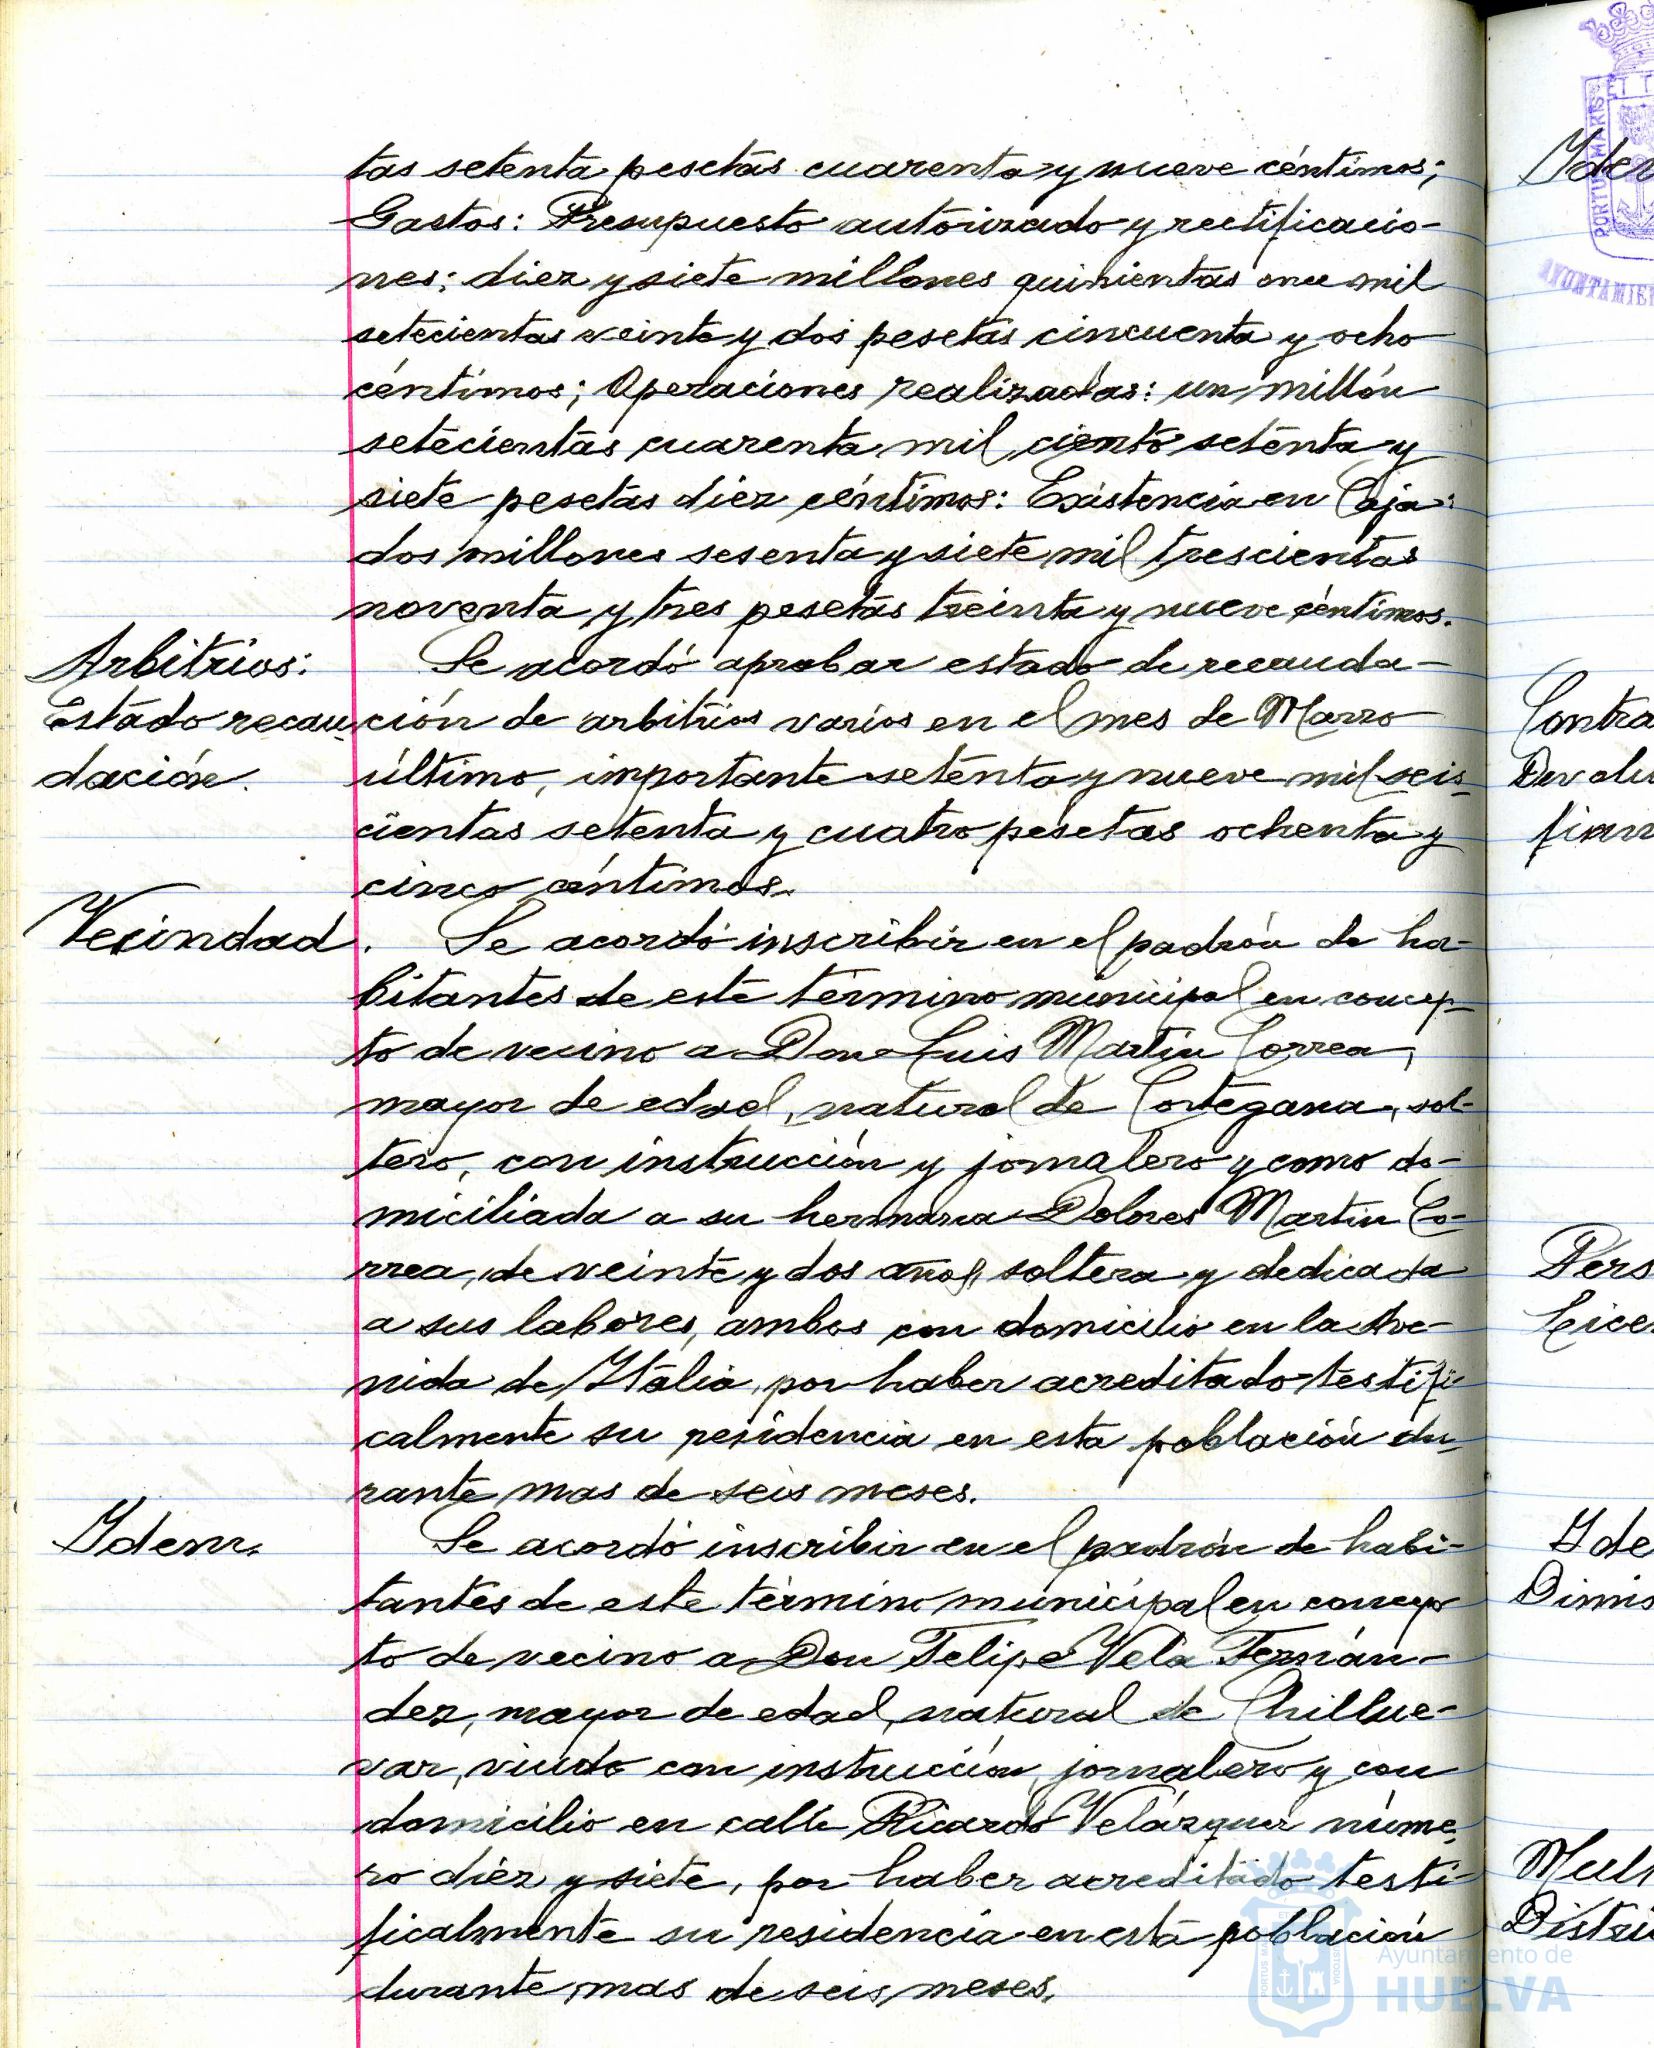 tas setenta pesetas cuarenta y nueve céntimos;
Gastos: Presupuesto autorizado y rectificacio-
nes: diez y siete millones quinientas once mil
setecientas veinte y dos pesetas cincuenta y ocho
céntimos; Operaciones realizadas: un millón
setecientas cuarenta mil ciento setenta y
siete pesetas diez céntimos: Existencia en Caja:
dos millones sesenta y siete mil trescientas
noventa y tres pesetas treinta y nueve céntimos.
Arbitrios:
Estado recau-
dación.
Se acordó aprobar estado de recauda-
ción de arbitrios varios en el mes de Marzo
último, importante setenta y nueve mil seis-
cientas setenta y cuatro pesetas ochenta y
cinco céntimos.
Vecindad.
Se acordó inscribir en el padrón de ha-
bitantes de este término municipal en concep-
to de vecino a Don Luis Martin Correa,
mayor de edad, natural de Cortegana, sol-
tero, con instrucción y jornalero y como do-
miciliada a su hermana Dolores Martin Co-
rrea, de veinte y dos años, soltera y dedicada
a sus labores, ambos con domicilio en la Ave-
nida de Italia, por haber acreditado testifi-
calmente su residencia en esta población du-
rante mas de seis meses.
Idem.
Se acordó inscribir en el padrón de habi-
tantes de este término municipal en concep-
to de vecino a Don Felipe Vela Fernán-
dez, mayor de edad, natural de Chillue-
var, viudo con instrucción, jornalero y con
domicilio en calle Ricardo Velázquez núme-
ro diez y siete, por haber acreditado testi-
ficalmente su residencia en esta población
durante mas de seis meses.
Idem
Contra
Devolu
fian
Pers
Licen
Ide
Dimis
Mult
Distri
PORTUS MARIS ET T
AYUNTAMIEN
Ayuntamiento de
HUELVA